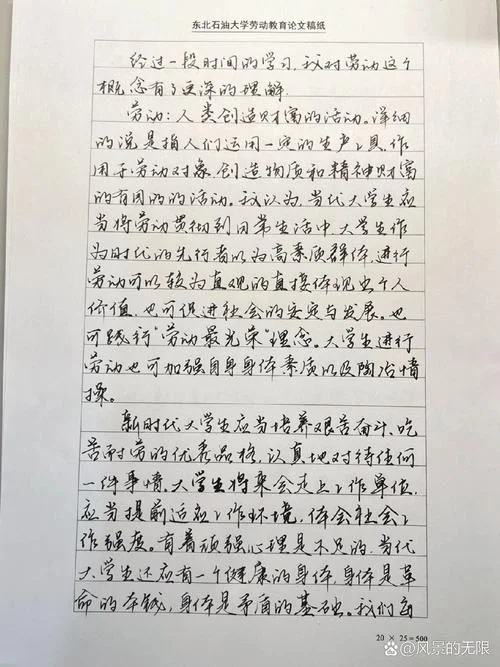 东北石油大学劳动教育论文稿纸
经过一段时间的学习,我对劳动这个
概念有了更深的理解.
劳动:人类创造财富的活动。详细
的说是指人们运用一定的生产工具,作
用于劳动对象,创造物质和精神财富
的有目的的活动。我认为,当代大学生应
当将劳动贯彻到日常生活中,大学生作
为时代的先行者以为高素质群体,进行
劳动可以较为直观的直接体现出个人
价值,也可促进社会的安定与发展。也
可践行“劳动最光荣”理念。大学生进行
劳动也可加强自身身体素质以及陶冶情
操。
新时代大学生应当培养艰苦奋斗、吃
苦耐劳的优秀品格,认真地对待任何
一件事情,大学生将来会走上工作单位,
应当提前适应工作环境,体会社会工
作强度。有着顽强心理是不足的,当代
大学生还应有一个健康的身体,身体是革
命的本钱,身体是矛盾的基础。我们应
20 × 25 = 500
Bai百科 @风景的无限